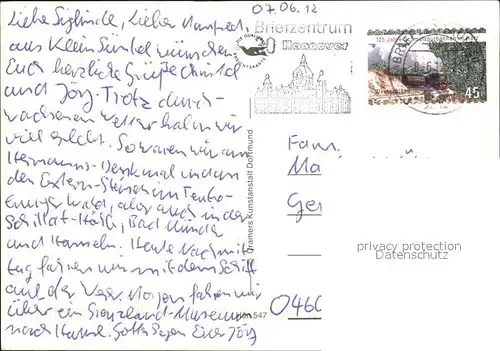 07.06.12
Liebe Sieglinde, Lieber Manfred,
aus Klein Süntel wünschen
Euch herzliche Grüße Christel
und Jörg. Trotz durch-
wachsenen Wetter haben wir
viel erlebt. So waren wir am
Hermanns-Denkmal und an
den Extern-Steinen im Teuto-
burger Wald, aber auch in der
Schillat-Höhle, Bad Münder
und Hameln. Heute Nachmit-
tag fahren wir mit dem Schiff
auf der Weser. Morgen fahren wir
über ein Museum
nach Hause. Gottes Segen Euer Jörg
Briefzentrum
Hannover
45
Cramers Kunstanstalt Dortmund
547
Fam.
Ma
Ge
0460
privacy protection
Datenschutz